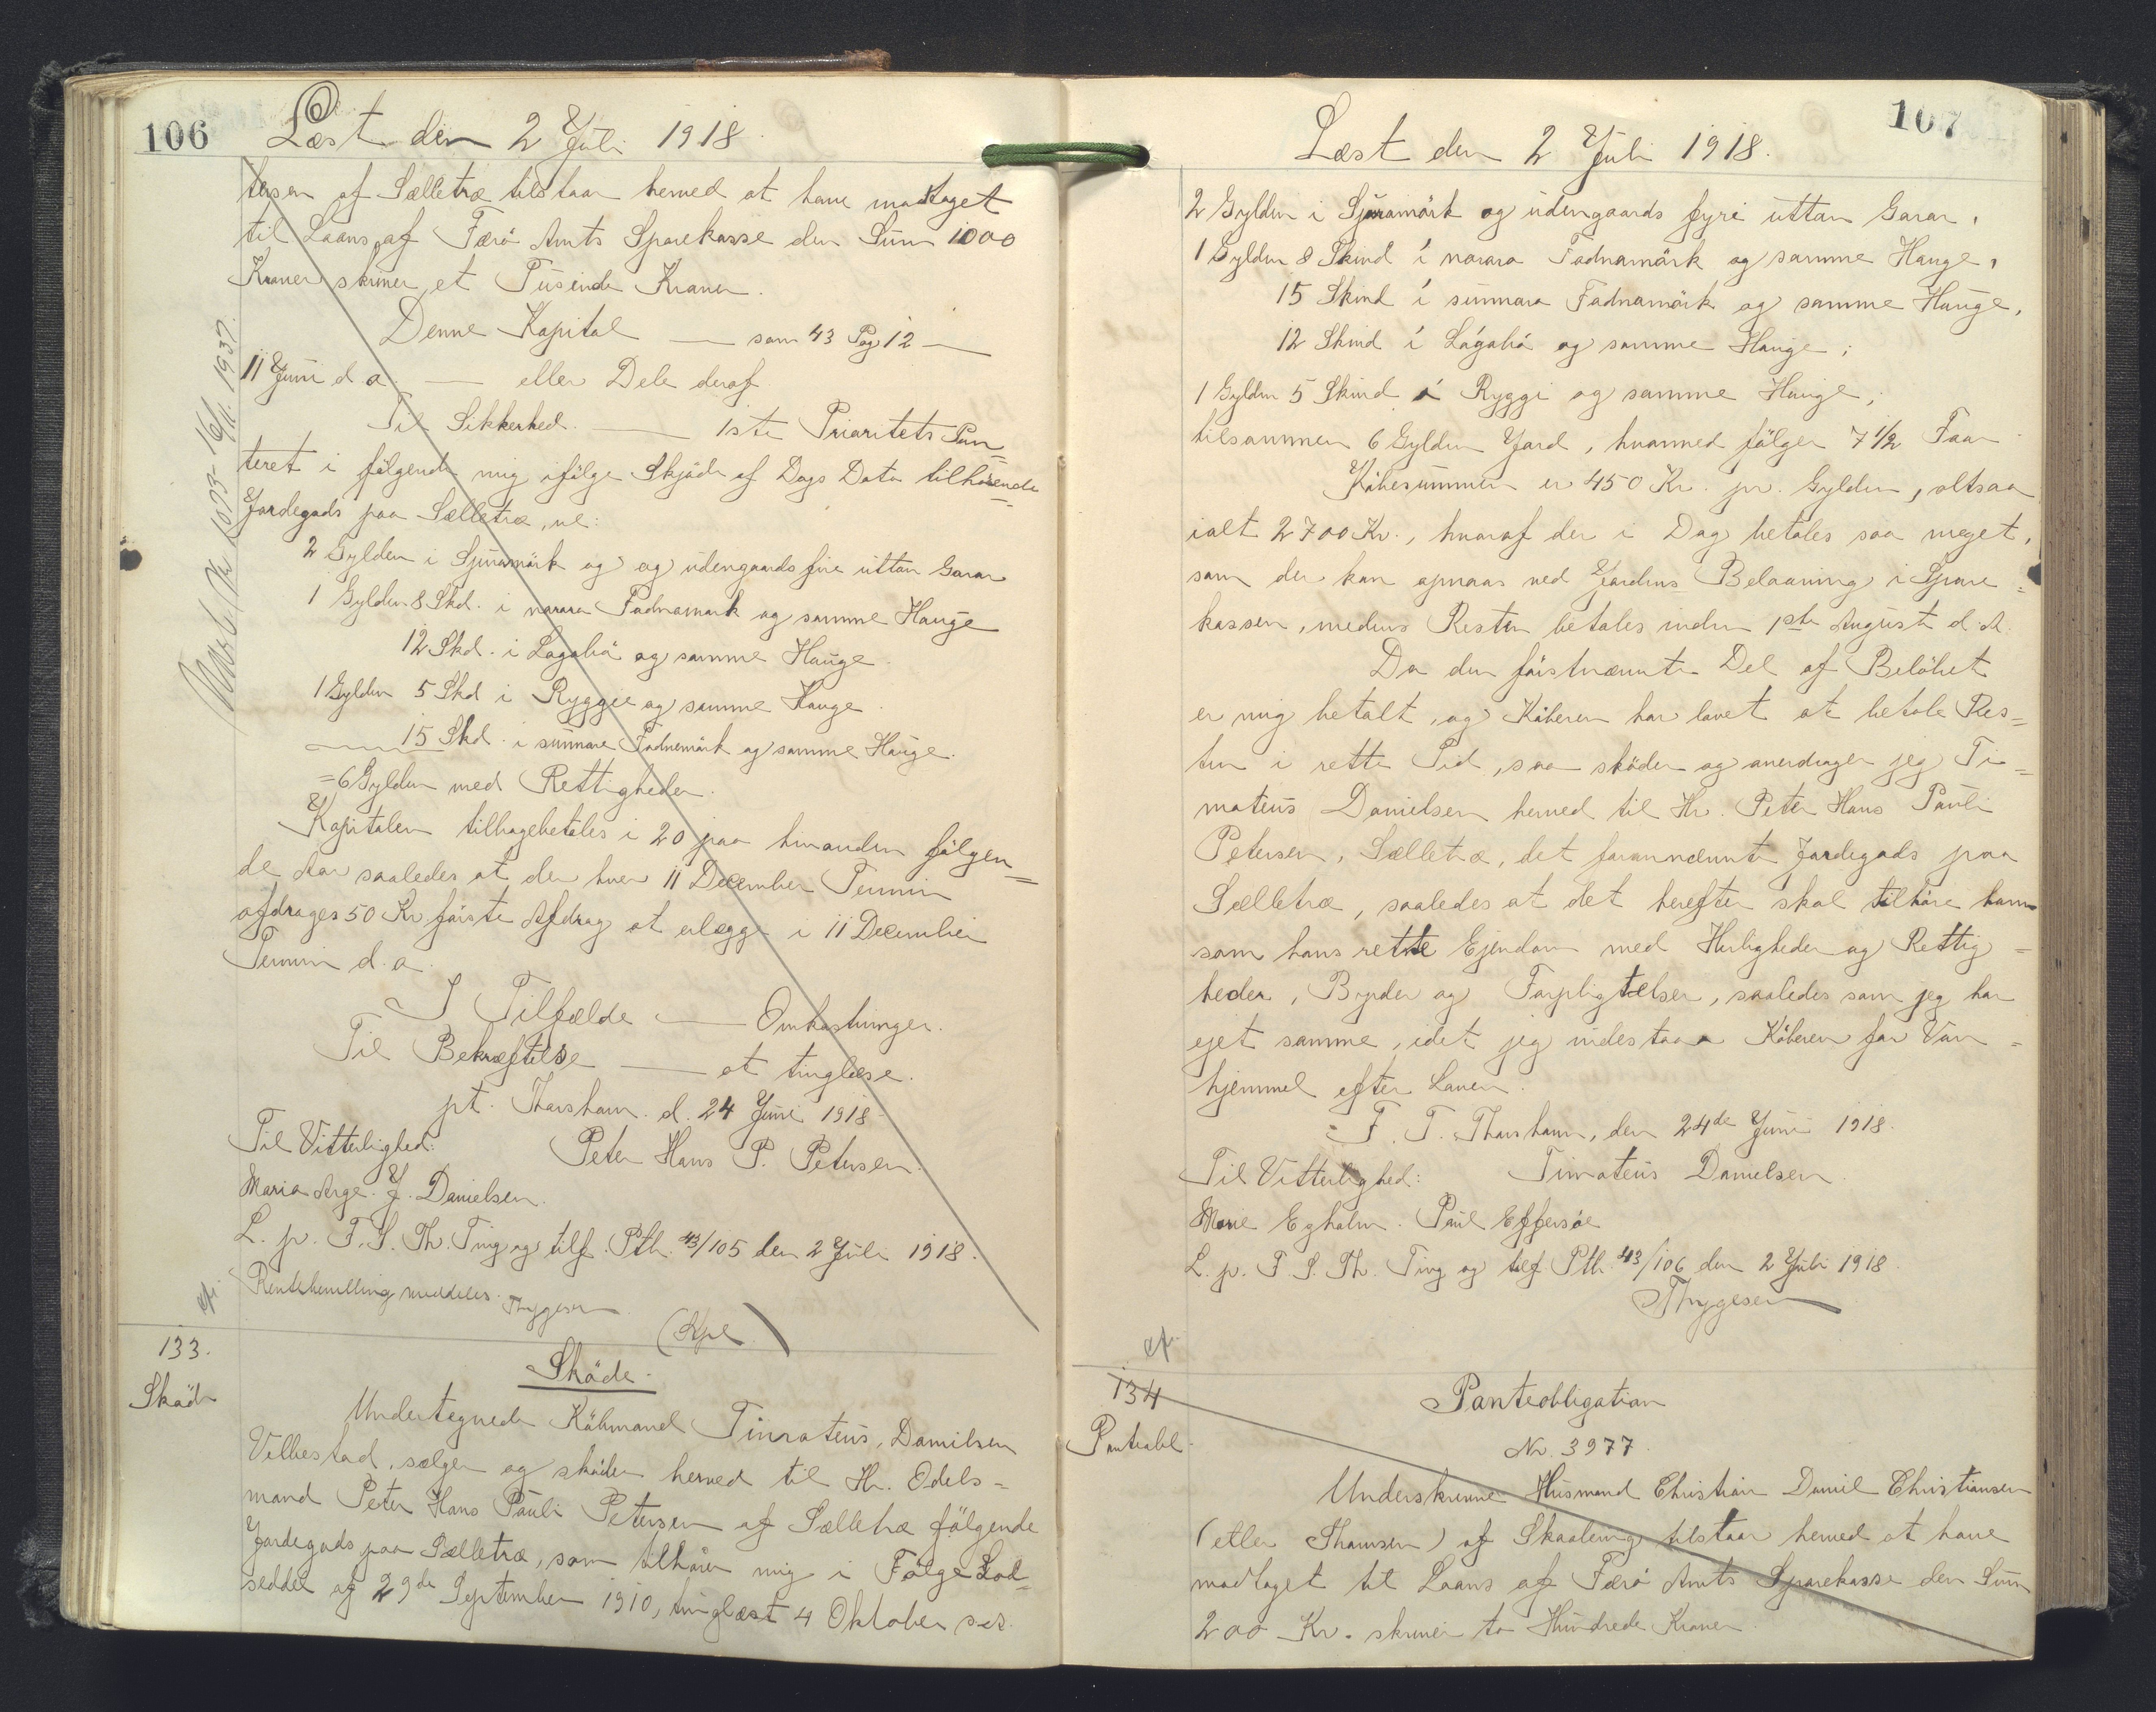 106
Læst den 2 Juli 1918.
tersen af Sælletræ tilstaar herved at have modtaget
til Laans af Færö Amts Sparekasse den Sum 1000
Kroner skriver et Tusinde Kroner.
Denne Kapital — som 43 Pag 12 —
11 Juni d a — eller Dele deraf
Til Sikkerhed — 1ste Prioritets Pan=
teret i fölgende mig ifölge Skjöde af Dags Dato tilhörende
Jordegods paa Sælletræ, nl:
2 Gylden i Sjúramörk og og udengaards fire uttan Garar
1 Gylden 8 Skd. i norara Fadnamörk og samme Hauge
12 Skd. i Lágabö og samme Hauge.
1 Gylden 5 Skd i Ryggi og samme Hauge.
15 Skd. i sunnara Fadnamörk og samme Hauge.
=6 Gylden med Rettigheder.
Kapitalen tilbagebetales i 20 paa hinanden fölgen=
de Aar saaledes at der hver 11 December Termin
afdrages 50 Kr förste Afdrag at erlægge i 11 December
Termin d. a.
I Tilfælde — Omkostninger.
Til Bekræftelse — at tinglæse.
pt. Thorshavn. d. 24 Juni 1918
Til Vitterlighed: Peter Hans P. Petersen.
Maria Arge. J. Danielsen.
L. p. F. S. Th. Ting og tilf. Ptb. 43/105 den 2 Juli 1918.
Rentebevilling meddeles. Thygesen
(Kpl.)
133.
Sköde
Sköde.
Undertegnede Köbmand Timoteus Danielsen
Velbestad, sælger og sköder herved til Hr. Odels=
mand Peter Hans Pauli Petersen af Sælletræ fölgende
Jordegods paa Sælletræ, som tilhörer mig i Følge Lod=
seddel af 29de September 1910, tinglæst 4 Oktober s. A.
107
Læst den 2 Juli 1918.
2 Gylden i Sjúramörk og udengaards fyri uttan Garar,
1 Gylden 8 Skind í norara Fadnamörk og samme Hauge,
15 Skind í sunnara Fadnamörk og samme Hauge,
12 Skind í Lágabö og samme Hauge;
1 Gylden 5 Skind á Ryggi og samme Hauge;
tilsammen 6 Gylden Jord, hvormed fölger 7 1/2 Faar.
Köbesummen er 450 Kr. pr. Gylden, altsaa
ialt 2700 Kr., hvoraf der i Dag betales saa meget,
som der kan opnaas ved Jordens Belaaning i Spare=
kassen, medens Resten betales inden 1ste August d. A.
Da den förstnævnte Del af Belöbet
er mig betalt, og Köberen har lovet at betale Res=
ten i rette Tid, saa sköder og overdrager jeg Ti=
moteus Danielsen herved til Hr. Peter Hans Pauli
Petersen, Sælletræ, det forannævnte Jordegods paa
Sælletræ, saaledes at det herefter skal tilhöre ham
som hans rette Ejendom med Herligheder og Rettig=
heder, Byrder og Forpligtelser, saaledes som jeg har
ejet samme, idet jeg indestaar Köberen for Van=
hjemmel efter Loven.
F. T. Thorshavn, den 24de Juni 1918.
Til Vitterlighed: Timoteus Danielsen
Marie Egholm. Paul Effersöe
L. p. F. S. Th. Ting og tilf. Ptb. 43/106 den 2 Juli 1918
Thygesen
134
Panteobl.
Panteobligation
Nr. 3977.
Underskrevne Husmand Christian Daniel Christiansen
(eller Thomsen) af Skaalevig tilstaar herved at have
modtaget til Laans af Færö Amts Sparekasse den Sum
200 Kr. skriver to Hundrede Kroner